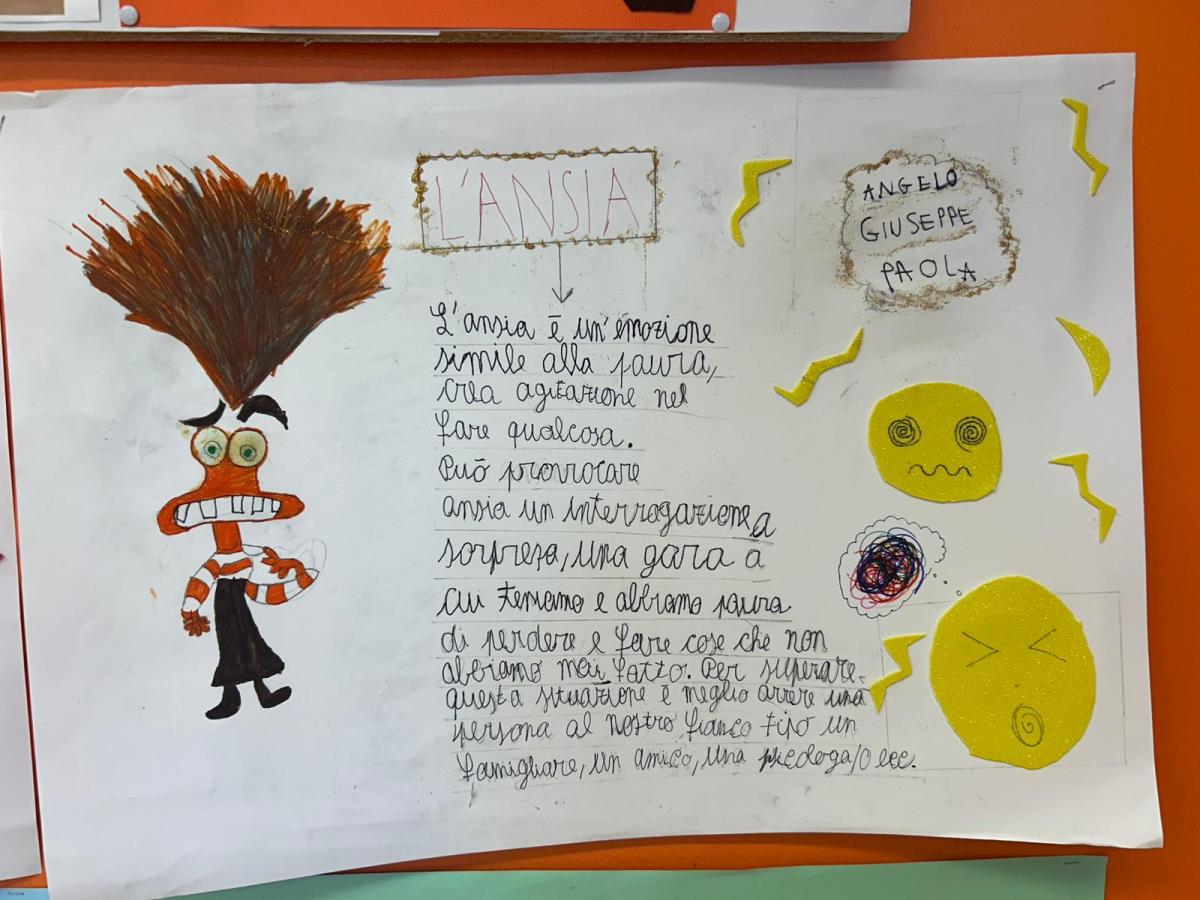 L'ANSIA
ANGELO
GIUSEPPE
PAOLA
L'ansia ē un'emozione
simile alla paura,
crea agitazione nel
fare qualcosa.
Puō provocare
ansia un interrogazione a
sorpresa, una gara a
cui teniamo e abbiamo paura
di perdere e fare cose che non
abbiamo mai fatto. Per superare
questa situazione è meglio avere una
persona al nostro fianco tipo un
famigliare, un amico, una picologa/o ecc.